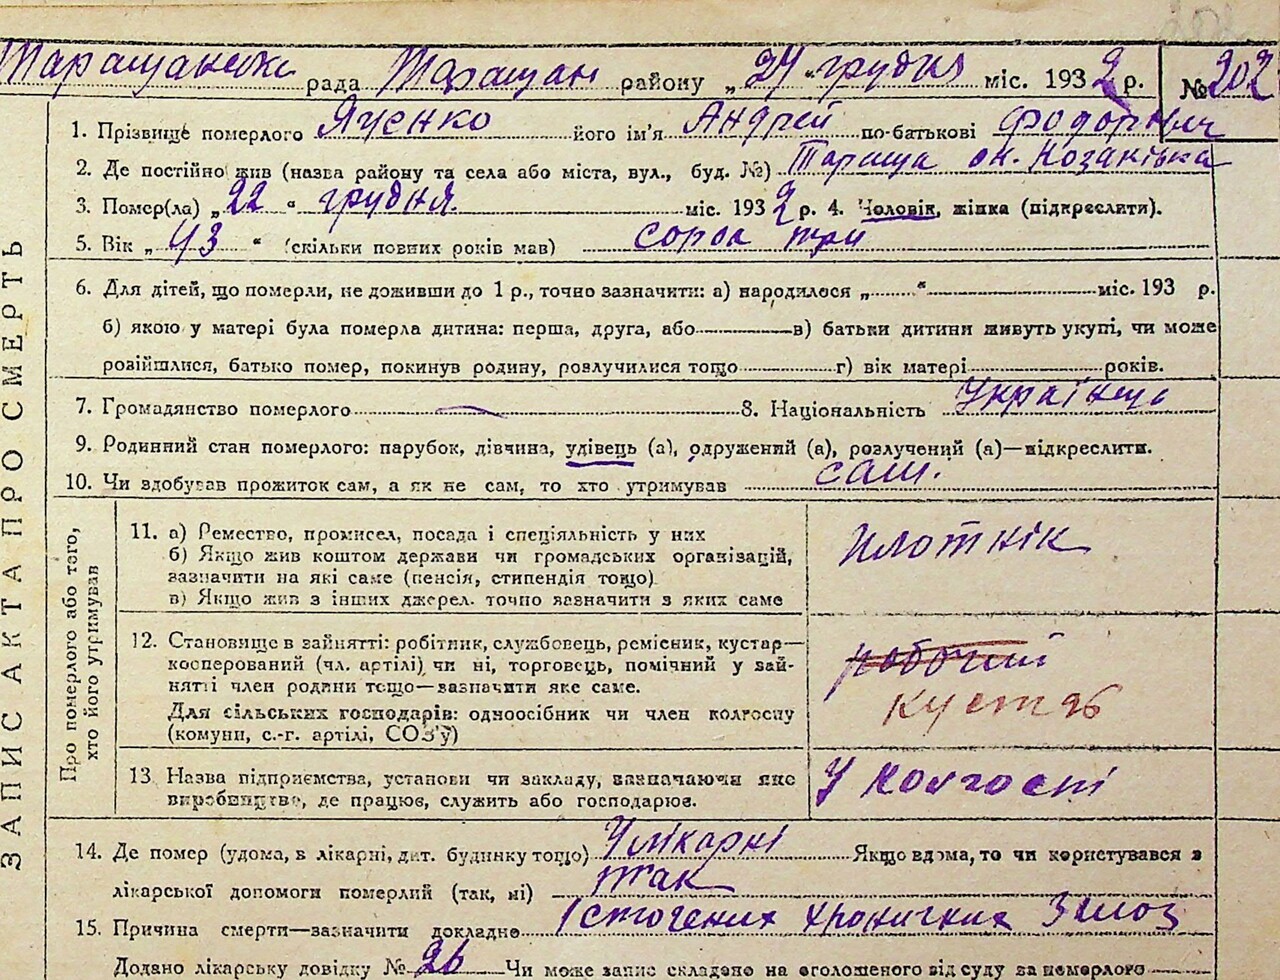 Таращанська рада Таращан району „24" грудня міс. 1932 р. № 202
1. Прізвище померлого Яценко його ім'я Андрей по-батькові Фодорович
2. Де постійно жив (назва району та села або міста, вул., буд. №) Тараща
3. Помер(ла) „22" грудня міс. 1932 р. 4. Чоловік, жінка (підкреслити).
5. Вік „43" (скільки повних років мав) сорок три
6. Для дітей, що померли, не доживши до 1 р., точно зазначити: а) народилося „ " міс. 193 р.
б) якою у матері була померла дитина: перша, друга, або в) батьки дитини живуть укупі, чи може
розійшлися, батько помер, покинув родину, розлучилися тощо г) вік матері років.
7. Громадянство померлого 8. Національність Українець
9. Родинний стан померлого: парубок, дівчина, удівець (а), одружений (а), розлучений (а)—підкреслити.
10. Чи здобував прожиток сам, а як не сам, то хто утримував сам.
ЗАПИС АКТА ПРО СМЕРТЬ
Про померлого або того,
хто його утримував
11. а) Ремество, промисел, посада і спеціяльність у них
б) Якщо жив коштом держави чи громадських організацій,
зазначити на які саме (пенсія, стипендія тощо)
в) Якщо жив з інших джерел. точно зазначити з яких саме
плотнік
12. Становище в зайнятті: робітник, службовець, ремісник, кустар—
кооперований (чл. артілі) чи ні, торговець, помічний у зай-
нятті член родини тощо—зазначити яке саме.
Для сільських господарів: одноосібник чи член колгоспу
(комуни, с.-г. артілі, СОЗ'у)
робочий
13. Назва підприємства, установи чи закладу, зазначаючи яке
виробництво, де працює, служить або господарює.
У колгоспі
14. Де помер (удома, в лікарні, дит. будинку тощо) У лікарні Якщо вдома, то чи користувався з
лікарської допомоги померлий (так, ні) так
15. Причина смерти—зазначити докладно
Додано лікарську довідку № 26 Чи може запис складено на оголошеного від суду за померлого